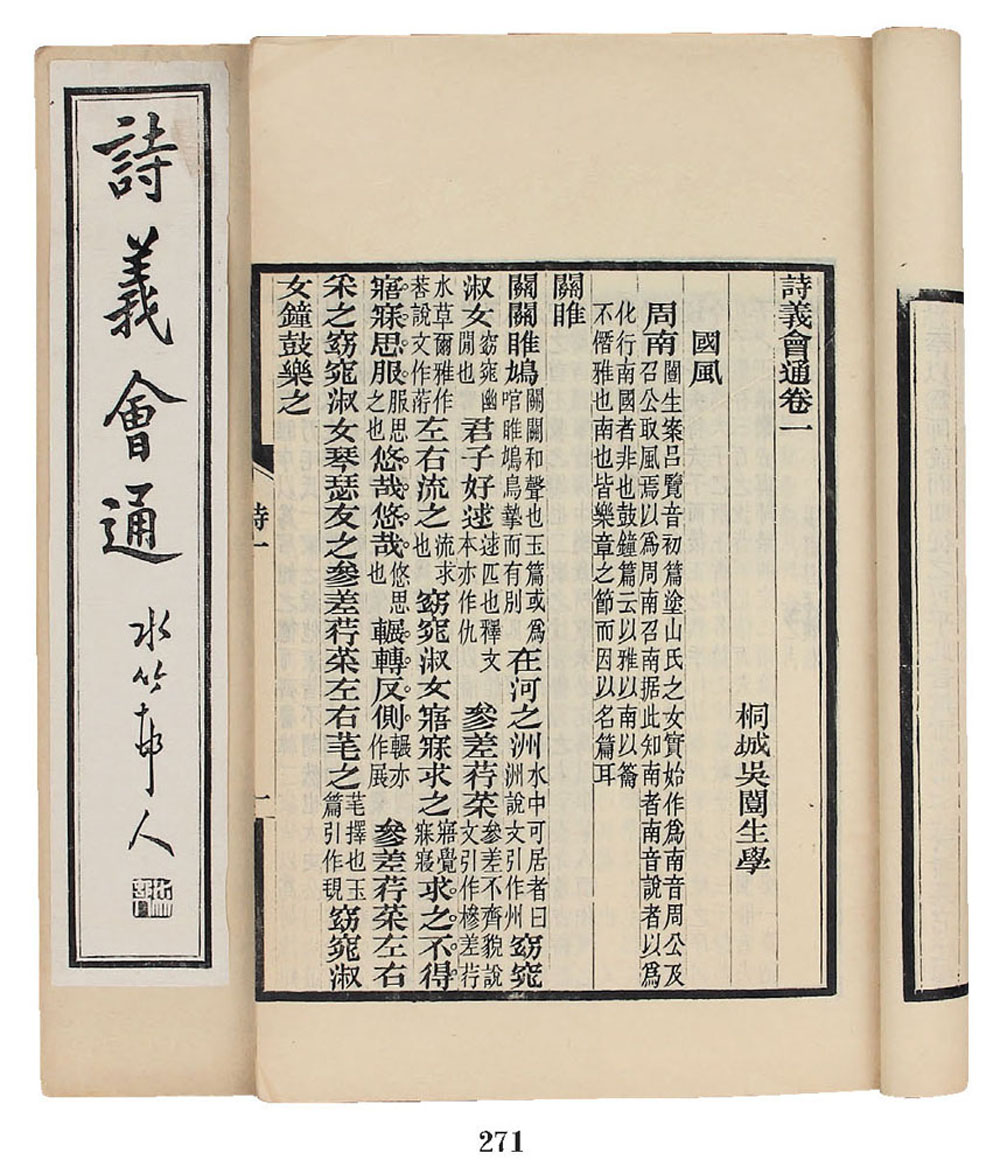 詩義會通
水竹邨人
詩義會通卷一
桐城吳闓生學
國風
周南闓生案呂覽音初篇塗山氏之女實始作爲南音周公及召公取風焉以爲周南召南据此知南者南音說者以爲
化行南國者非也鼓鐘篇云以雅以南以籥不僭雅也南也皆樂章之節而因以名篇耳
關雎
關關雎鳩關關和聲也玉篇或爲雎鳩鳥摯而有別在河之洲水中可居者曰洲說文引作州窈窕
淑女窈窕幽閒也君子好逑逑匹也釋文本亦作仇參差荇菜參差不齊貌說文引作槮差荇
水草爾雅作莕說文作左右流之流求也窈窕淑女寤寐求之寤覺寐寢求之不得。
寤寐思服。服思之也悠哉悠哉。悠思也輾轉反側。輾亦作展參差荇菜左右
采之窈窕淑女琴瑟友之參差荇菜左右芼之芼擇也玉篇引作覒窈窕淑
女鐘鼓樂之
詩一
一
271